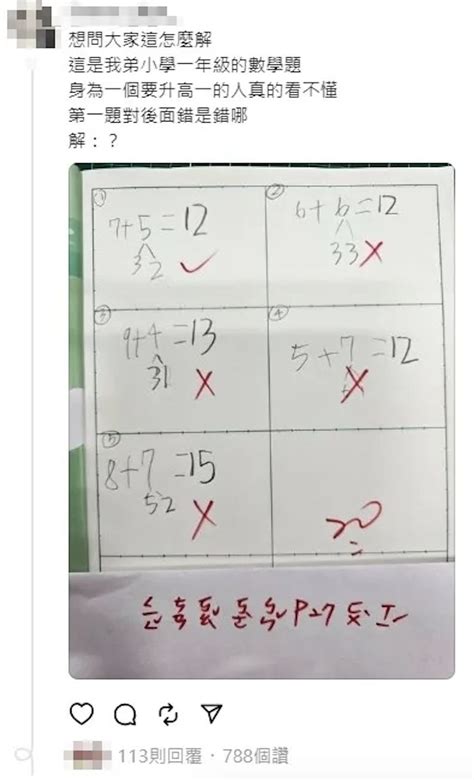 想問大家這怎麼解
這是我弟小學一年級的數學題
身為一個要升高一的人真的看不懂
第一題對後面錯是錯哪
解：？
① ②
7+5=12 6+6=12
3 2 ✓ 3 3 X
③ ④
9+4=13 5+7=12
3 1 X X
⑤
8+7=15
5 2 X 20
P27
113則回覆．788個讚